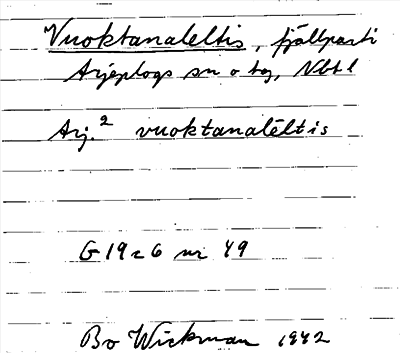 Vuoktanaleltis, fjällparti
Arjeplogs sn o tg, Nbtl
Arj.² vuoktanalēltis
G 19 c 6 nr 49
Bo Wickman 1942